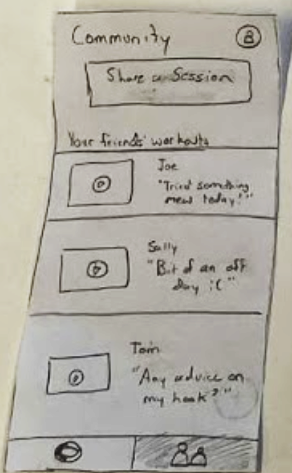 Community
Share a Session
Your friends' workouts
Joe
"Tried something
new today!"
Sally
"Bit of an off
day :("
Tom
"Any advice on
my hook?"